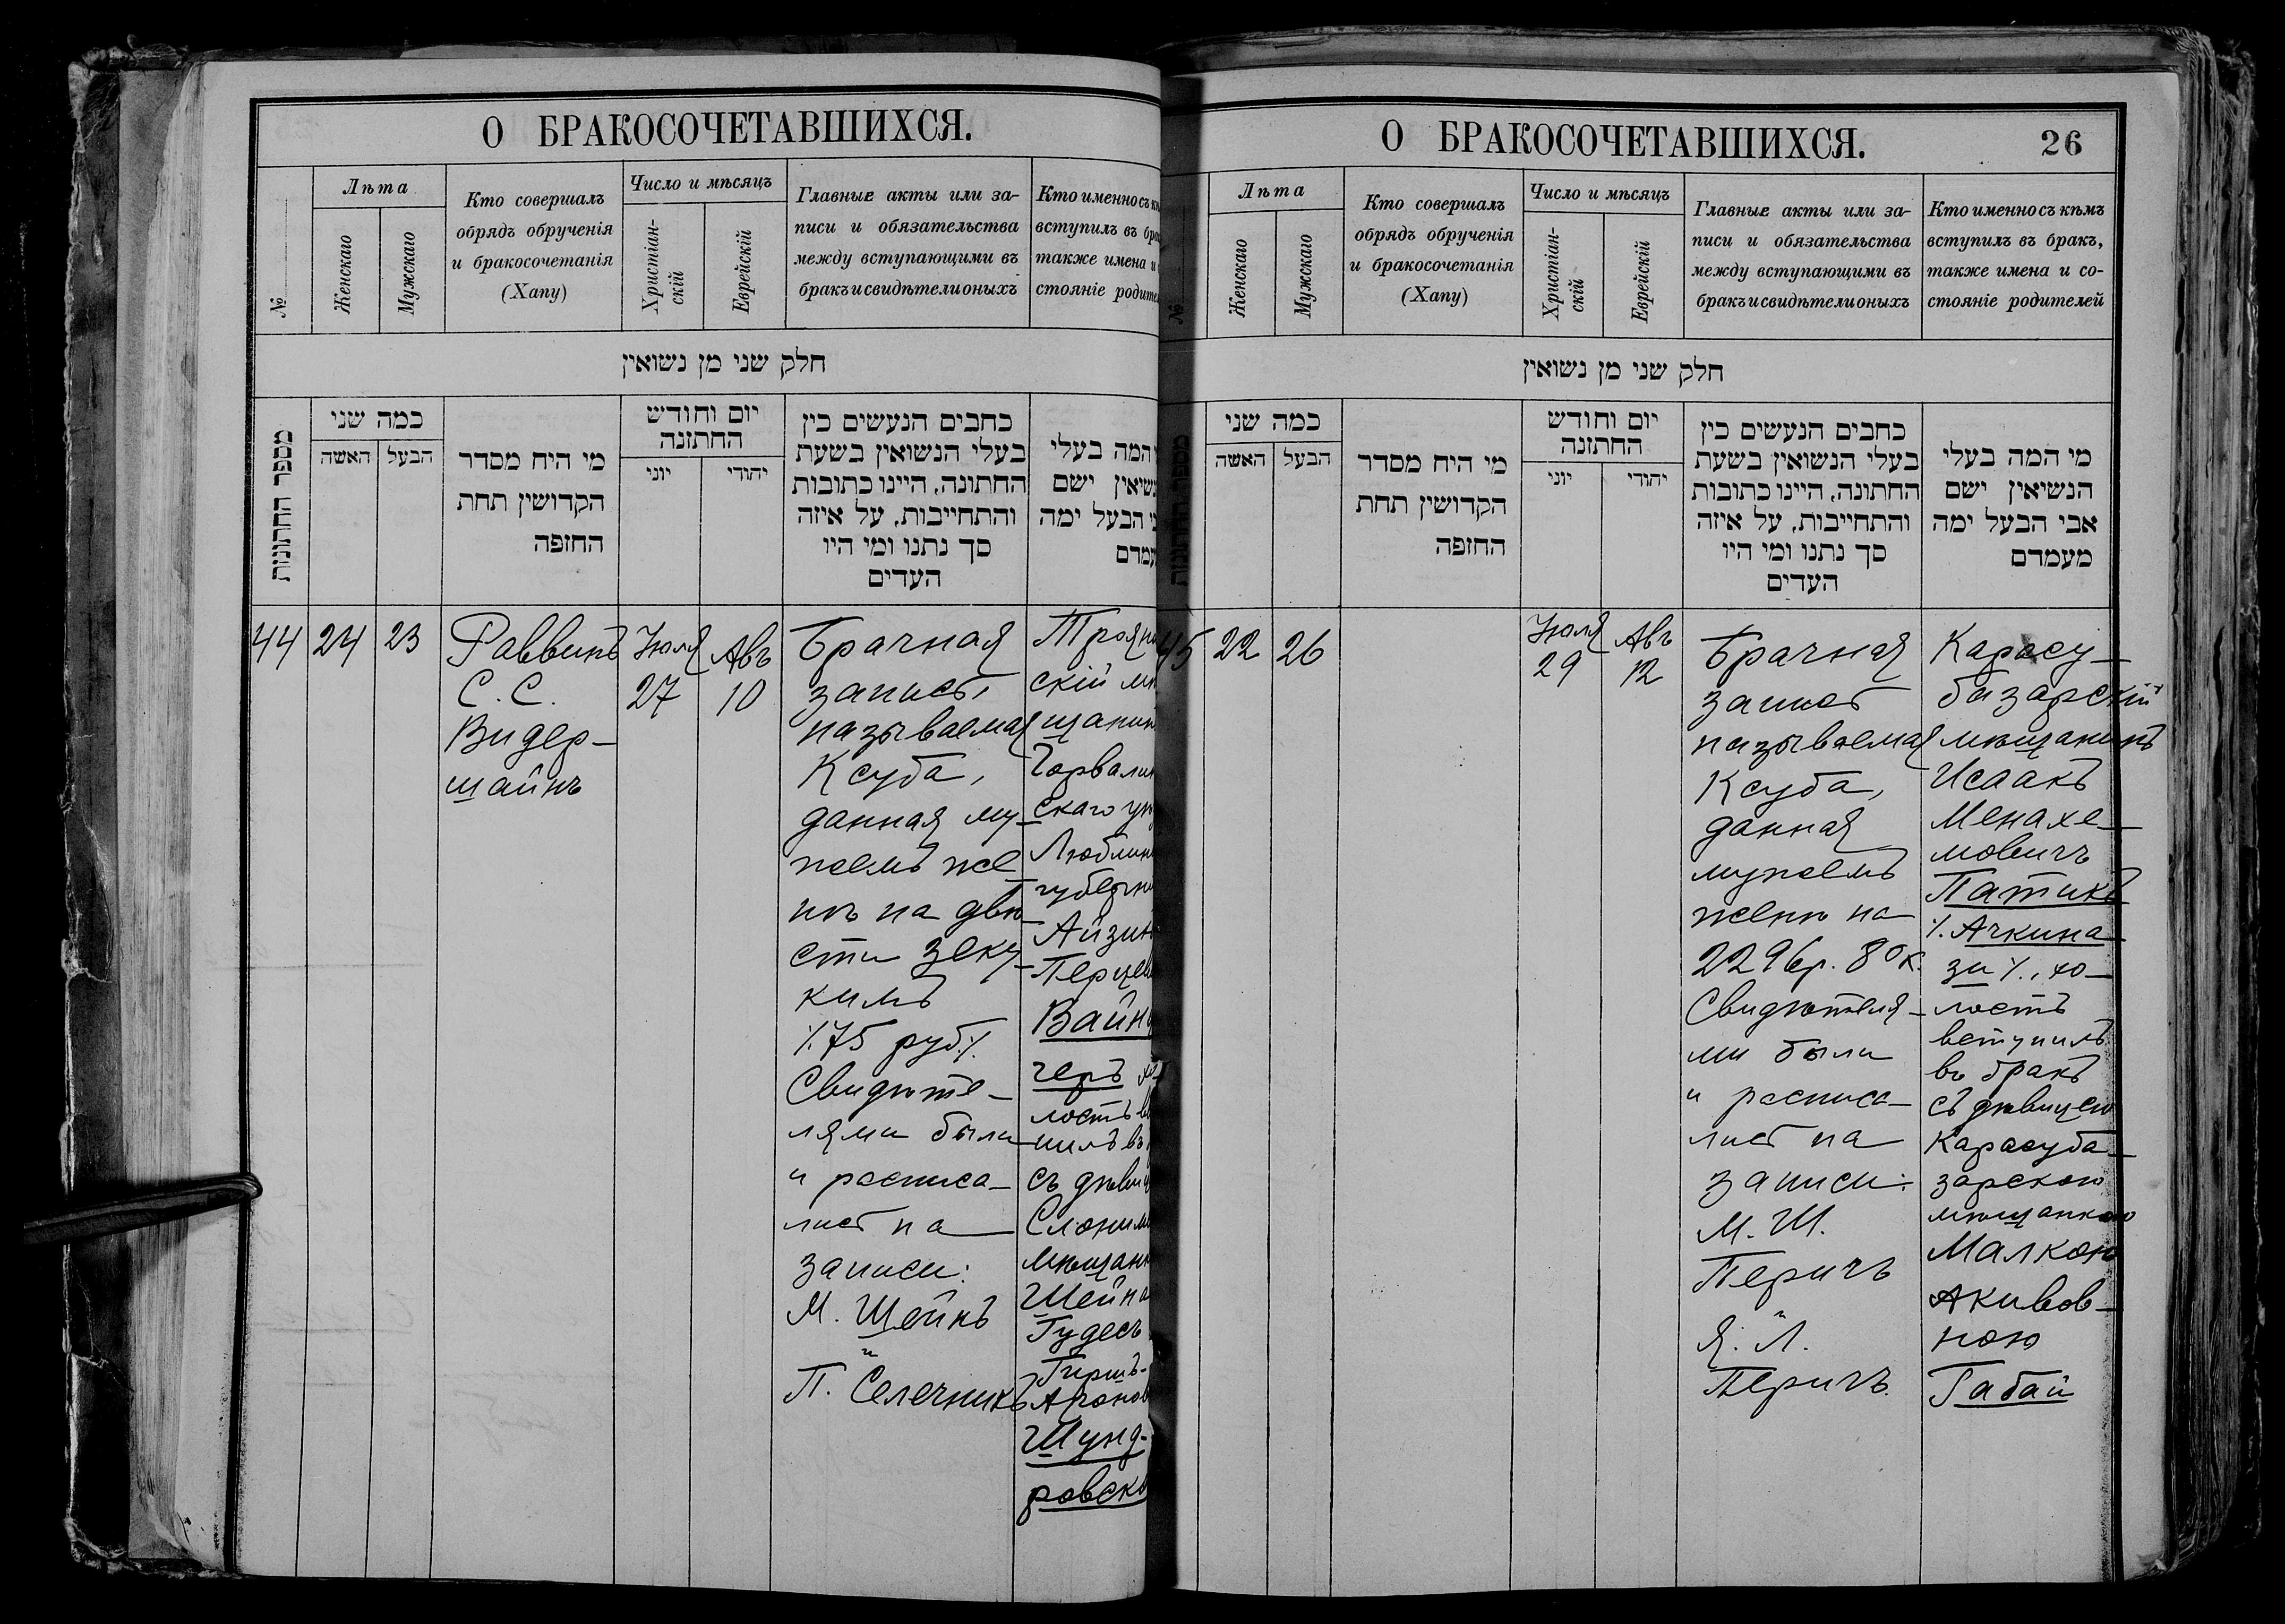 О БРАКОСОЧЕТАВШИХСЯ.
№
Лѣта
Женскаго
Мужскаго
Кто совершалъ
обрядъ обрученія
и бракосочетанія
(Хапу)
Число и мѣсяцъ
Христіан-
скій
Еврейскій
Главные акты или за-
писи и обязательства
между вступающими въ
бракъ и свидѣтели оныхъ
Кто именно съ
вступилъ въ
также имена и
стояніе
חלק שני מן נשואין
מספר החתונות
כמה שני
האשה
הבעל
מי היח מסדר
הקדושין תחת
החזפה
יום וחודש
החתזנה
יוני
יהודי
כחבים הנעשים כין
בעלי הנשואין בשעת
החתונה, היינו כתובות
והתחייבות, על איזה
סך נתנו ומי היו
העדים
המה בעלי
ישם
הבעל ימה
44
24
23
Раввинъ
С. С.
Видер-
шайнъ
Іюля
27
Авъ
10
Брачная
запись,
называемая
Ксуба,
данная му-
жемъ же-
нѣ на двѣ-
сти зеку-
кимъ
/.75 руб./.
Свидѣте-
лями были
и росписа-
лись на
записи:
М. Шейнъ
и
П. Селечникъ
скій
скаго
Айзикъ
Вайн
черъ
лостъ
съ
Шейна
Гудесъ
Гиршъ-
Шунд-
О БРАКОСОЧЕТАВШИХСЯ.
26
№
Лѣта
Женскаго
Мужскаго
Кто совершалъ
обрядъ обрученія
и бракосочетанія
(Хапу)
Число и мѣсяцъ
Христіан-
скій
Еврейскій
Главные акты или за-
писи и обязательства
между вступающими въ
бракъ и свидѣтели оныхъ
Кто именно съ кѣмъ
вступилъ въ бракъ,
также имена и со-
стояніе родителей
חלק שני מן נשואין
כמה שני
האשה
הבעל
מי היח מסדר
הקדושין תחת
החזפה
יום וחודש
החתזנה
יוני
יהודי
כחבים הנעשים כין
בעלי הנשואין בשעת
החתונה, היינו כתובות
והתחייבות, על איזה
סך נתנו ומי היו
העדים
מי המה בעלי
הנשיאין ישם
אבי הבעל ימה
מעמדם
45
22
26
Іюля
29
Авъ
12
Брачная
запись
называемая
Ксуба,
данная
мужемъ
женѣ на
2296р. 80к.
Свидѣтеля-
ми были
и росписа-
лись на
записи:
М. Ш.
Перичъ
и
Я. Л.
Перичъ.
Карасу-
базарскій
мѣщанинъ
Исаакъ
Менахе-
мовичъ
Патикъ
/. Ачкина-
зи /., хо-
лостъ
вступилъ
въ бракъ
съ дѣвицею
Карасуба-
зарскою
мѣщанкою
Малкою
Акивов-
ною
Габай